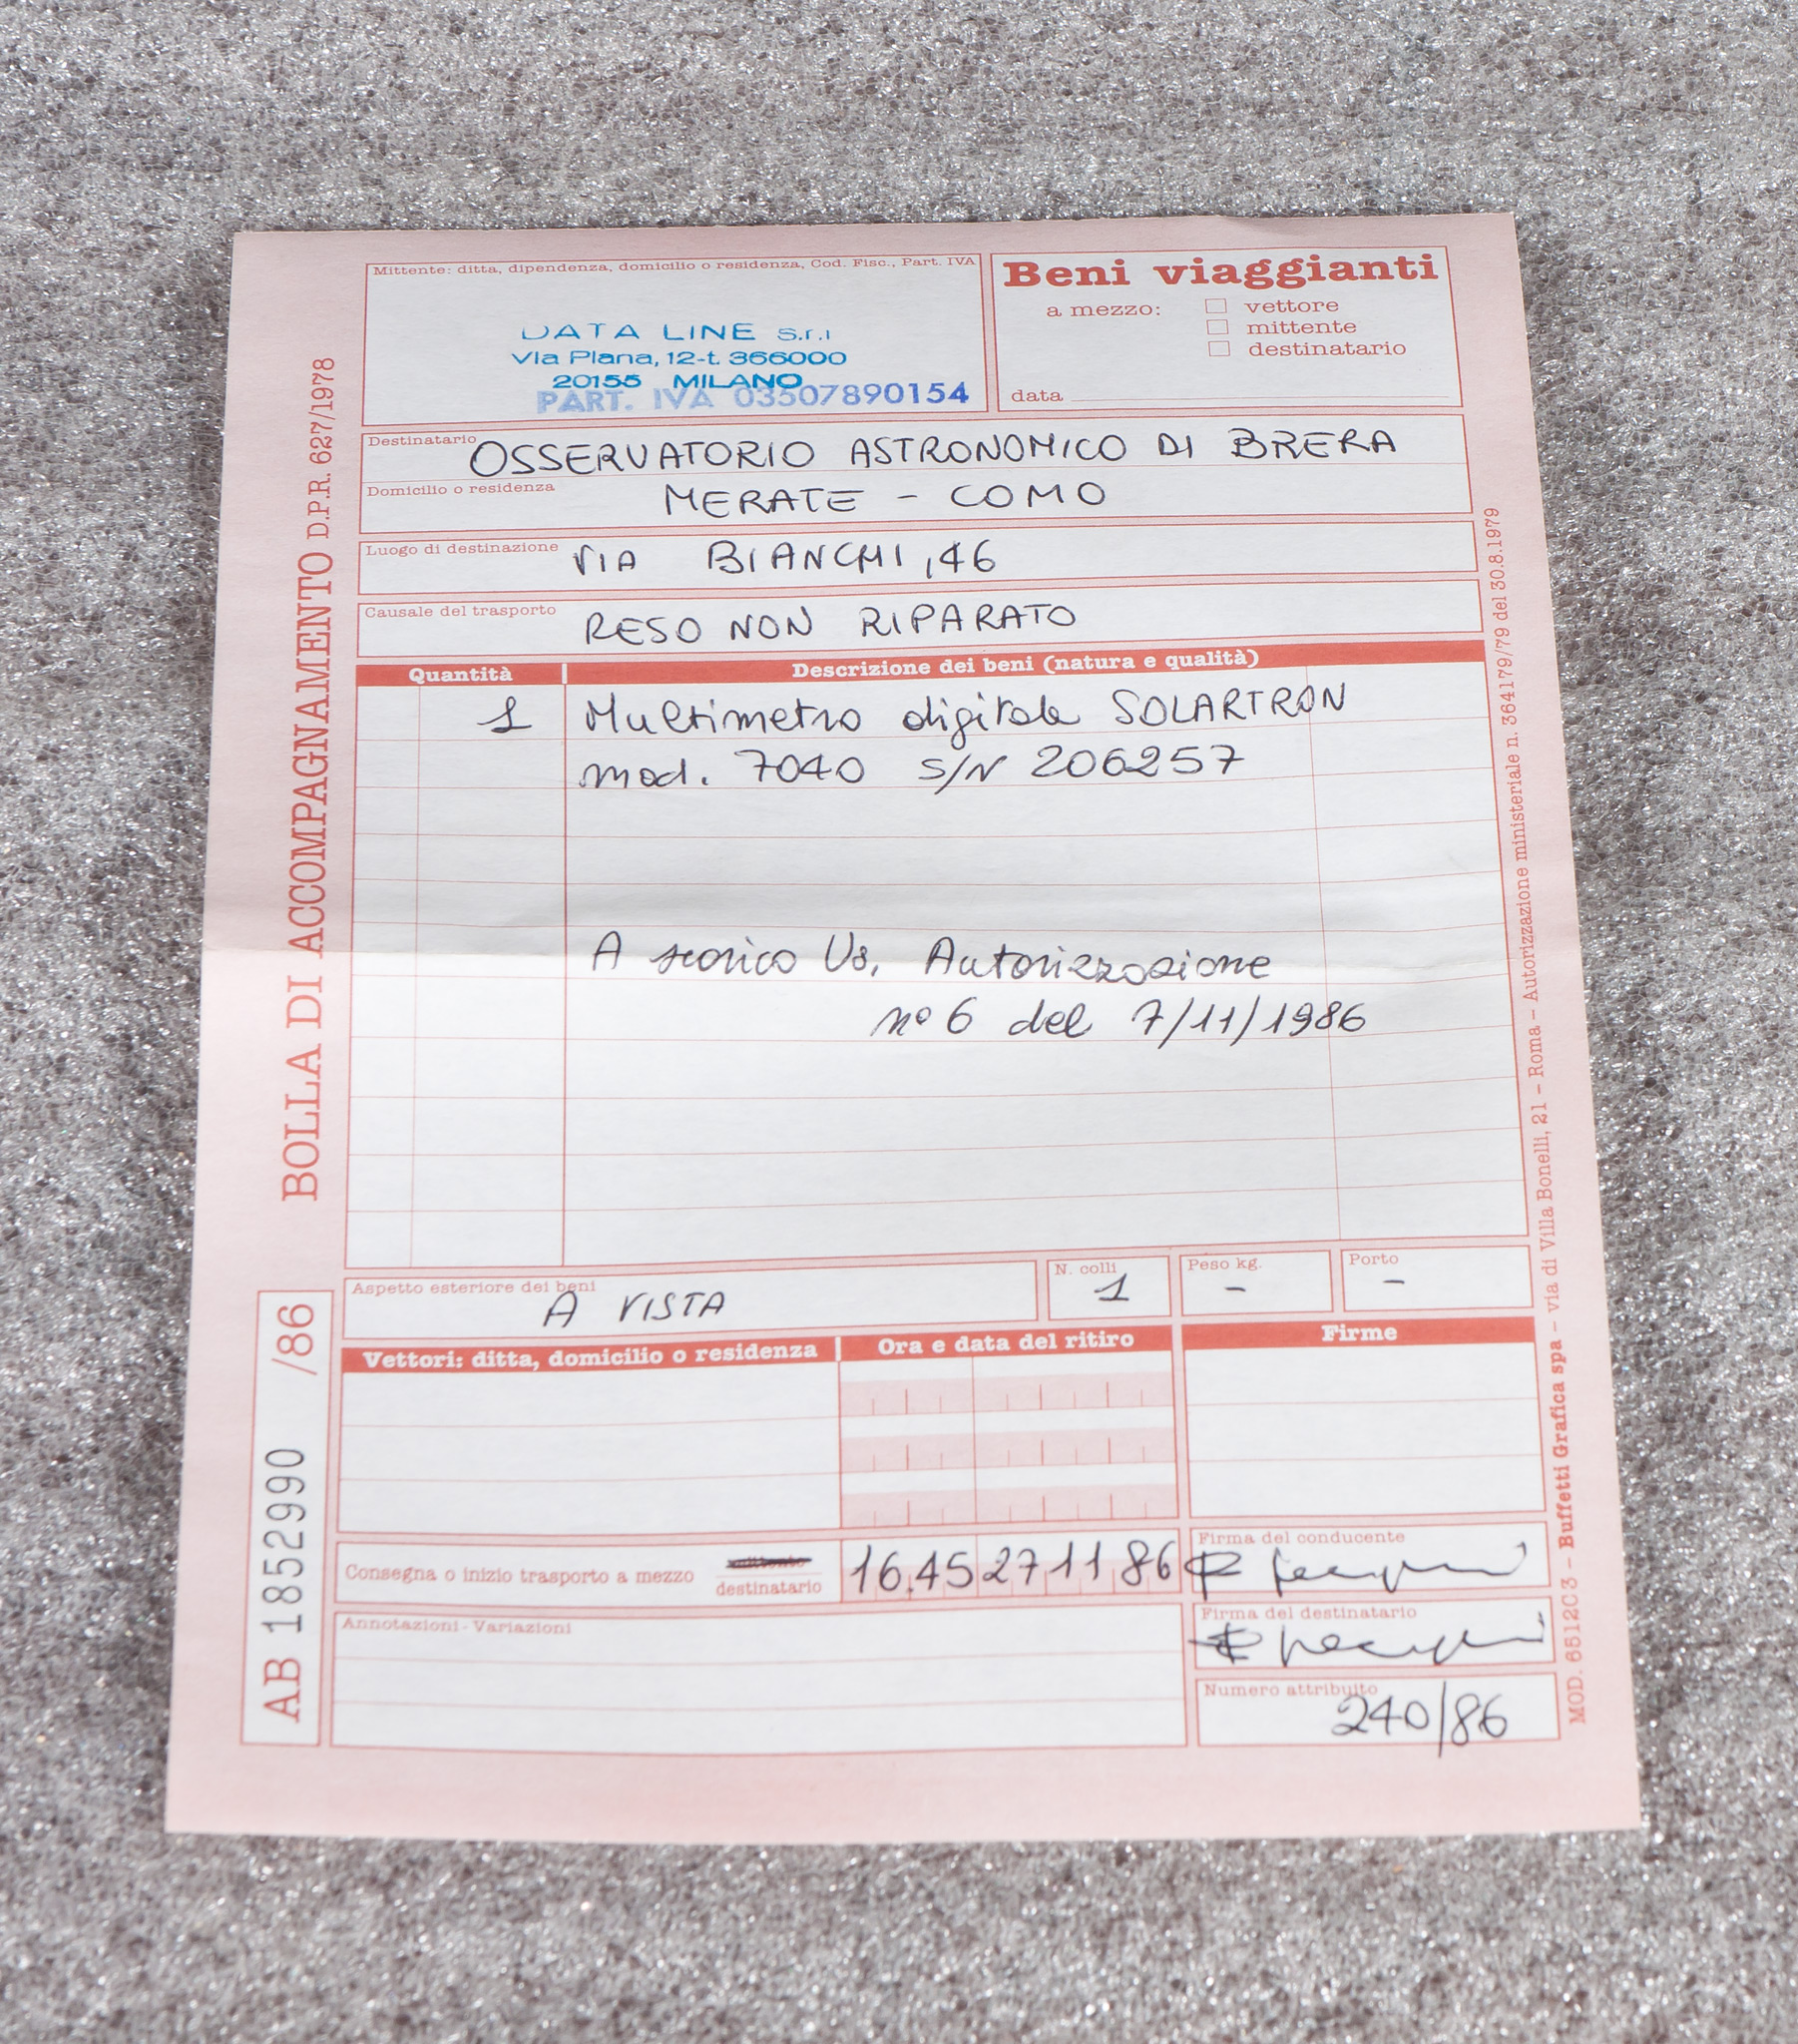 Mittente: ditta, dipendenza, domicilio o residenza, Cod. Fisc., Part. IVA
DATA LINE s.r.l
Via Plana, 12-t. 366000
20155 MILANO
PART. IVA 03507890154
Beni viaggianti
a mezzo:
vettore
mittente
destinatario
data
Destinatario OSSERVATORIO ASTRONOMICO DI BRERA
Domicilio o residenza MERATE - COMO
Luogo di destinazione VIA BIANCHI, 46
Causale del trasporto RESO NON RIPARATO
Quantità Descrizione dei beni (natura e qualità)
1 Multimetro digitale SOLARTRON
mod. 7040 S/N 206257
A scarico Vs. Autorizzazione
n° 6 del 7/11/1986
Aspetto esteriore dei beni A VISTA
N. colli 1
Peso kg. -
Porto -
Vettori: ditta, domicilio o residenza Ora e data del ritiro Firme
Consegna o inizio trasporto a mezzo destinatario 16.45 27 11 86
Firma del conducente
Firma del destinatario
Annotazioni - Variazioni
Numero attribuito 240/86
BOLLA DI ACCOMPAGNAMENTO D.P.R. 627/1978
AB 1852990 /86
MOD. 6512C3 - Buffetti Grafica spa - via di Villa Bonelli, 21 - Roma - Autorizzazione ministeriale n. 364179/79 del 30.8.1979